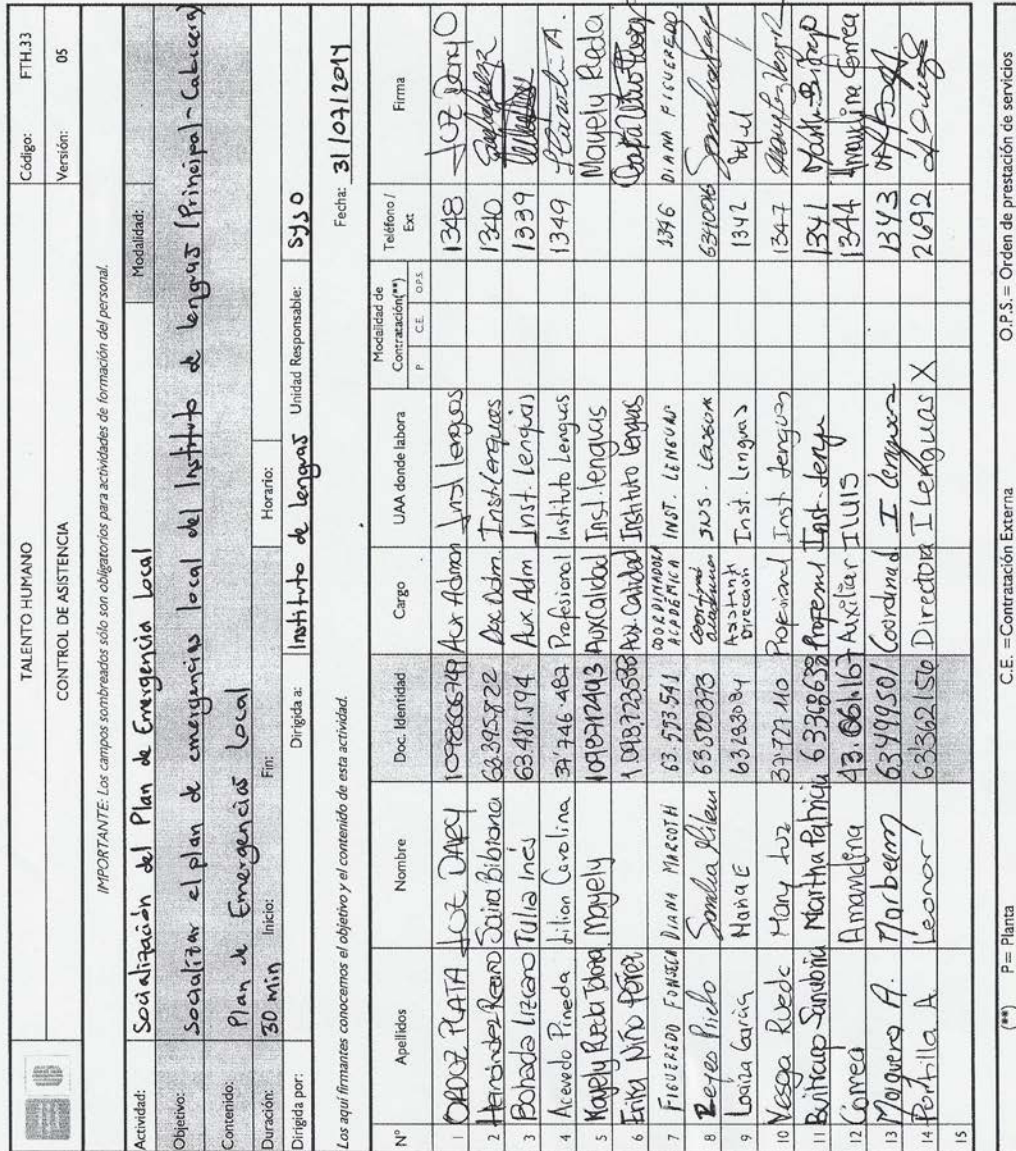 TALENTO HUMANO
Código: FTH.33
CONTROL DE ASISTENCIA
Versión: 05
IMPORTANTE: Los campos sombreados sólo son obligatorios para actividades de formación del personal.
Actividad: Socialización del Plan de Emergencia Local
Modalidad:
Objetivo: Socializar el plan de emergencias local del Instituto de Lenguas (Principal - Cabecera)
Contenido: Plan de Emergencias Local
Duración: 30 min Inicio: Fin: Horario:
Dirigida por: Dirigida a: Instituto de Lenguas Unidad Responsable: SYSO
Los aquí firmantes conocemos el objetivo y el contenido de esta actividad. Fecha: 31/07/2014
N° Apellidos Nombre Doc. Identidad Cargo UAA donde labora Modalidad de Contratación(**) Teléfono / Ext Firma
P C.E. O.P.S.
1 ORDUZ PLATA LUZ DARY 1098606749 Aux Admon Inst Lenguas 1348 Luz Dary O
2 Hernández Saira Bibiana 63.395.822 Aux. Adm. Inst. Lenguas 1340
3 Bohada Lizcano Julia Inés 63.481.594 Aux. Adm Inst. Lenguas 1339
4 Acevedo Pineda Lilian Carolina 37'746.487 Profesional Instituto Lenguas 1349
5 Mayely Rueda Mayely Aux Calidad Inst. lenguas Mayely Rueda
6 Erika Niño Pérez 1.098.723.588 Aux. Calidad Instituto lenguas
7 FIGUEREDO FONSECA DIANA MARGOTH 63.593.541 COORDINADORA ACADÉMICA INST. LENGUAS 1346 DIANA FIGUEREDO
8 Reyes Prieto Sandra Milena 63500373 Coordinad academica INS. 6340016
9 Loaiza García María E 63293084 Asistente Dirección Inst. Lenguas 1342
10 Vesga Rueda Mary Luz 37.727.110 Profesional Inst. Lenguas 1347
11 Buitrago Sanabria Martha Patricia 63368638 Profesional Inst. Lengu 1341
12 Correa Amandina 43.061.167 Auxiliar ILUIS 1344 Amandina Correa
13 Mosquera A. Marbeam 63.499.501 Coordinad I Lenguas 1343
14 Portilla A. Leonor 63'362156 Directora I Lenguas X 2692
15
(**) P = Planta C.E. = Contratación Externa O.P.S. = Orden de prestación de servicios